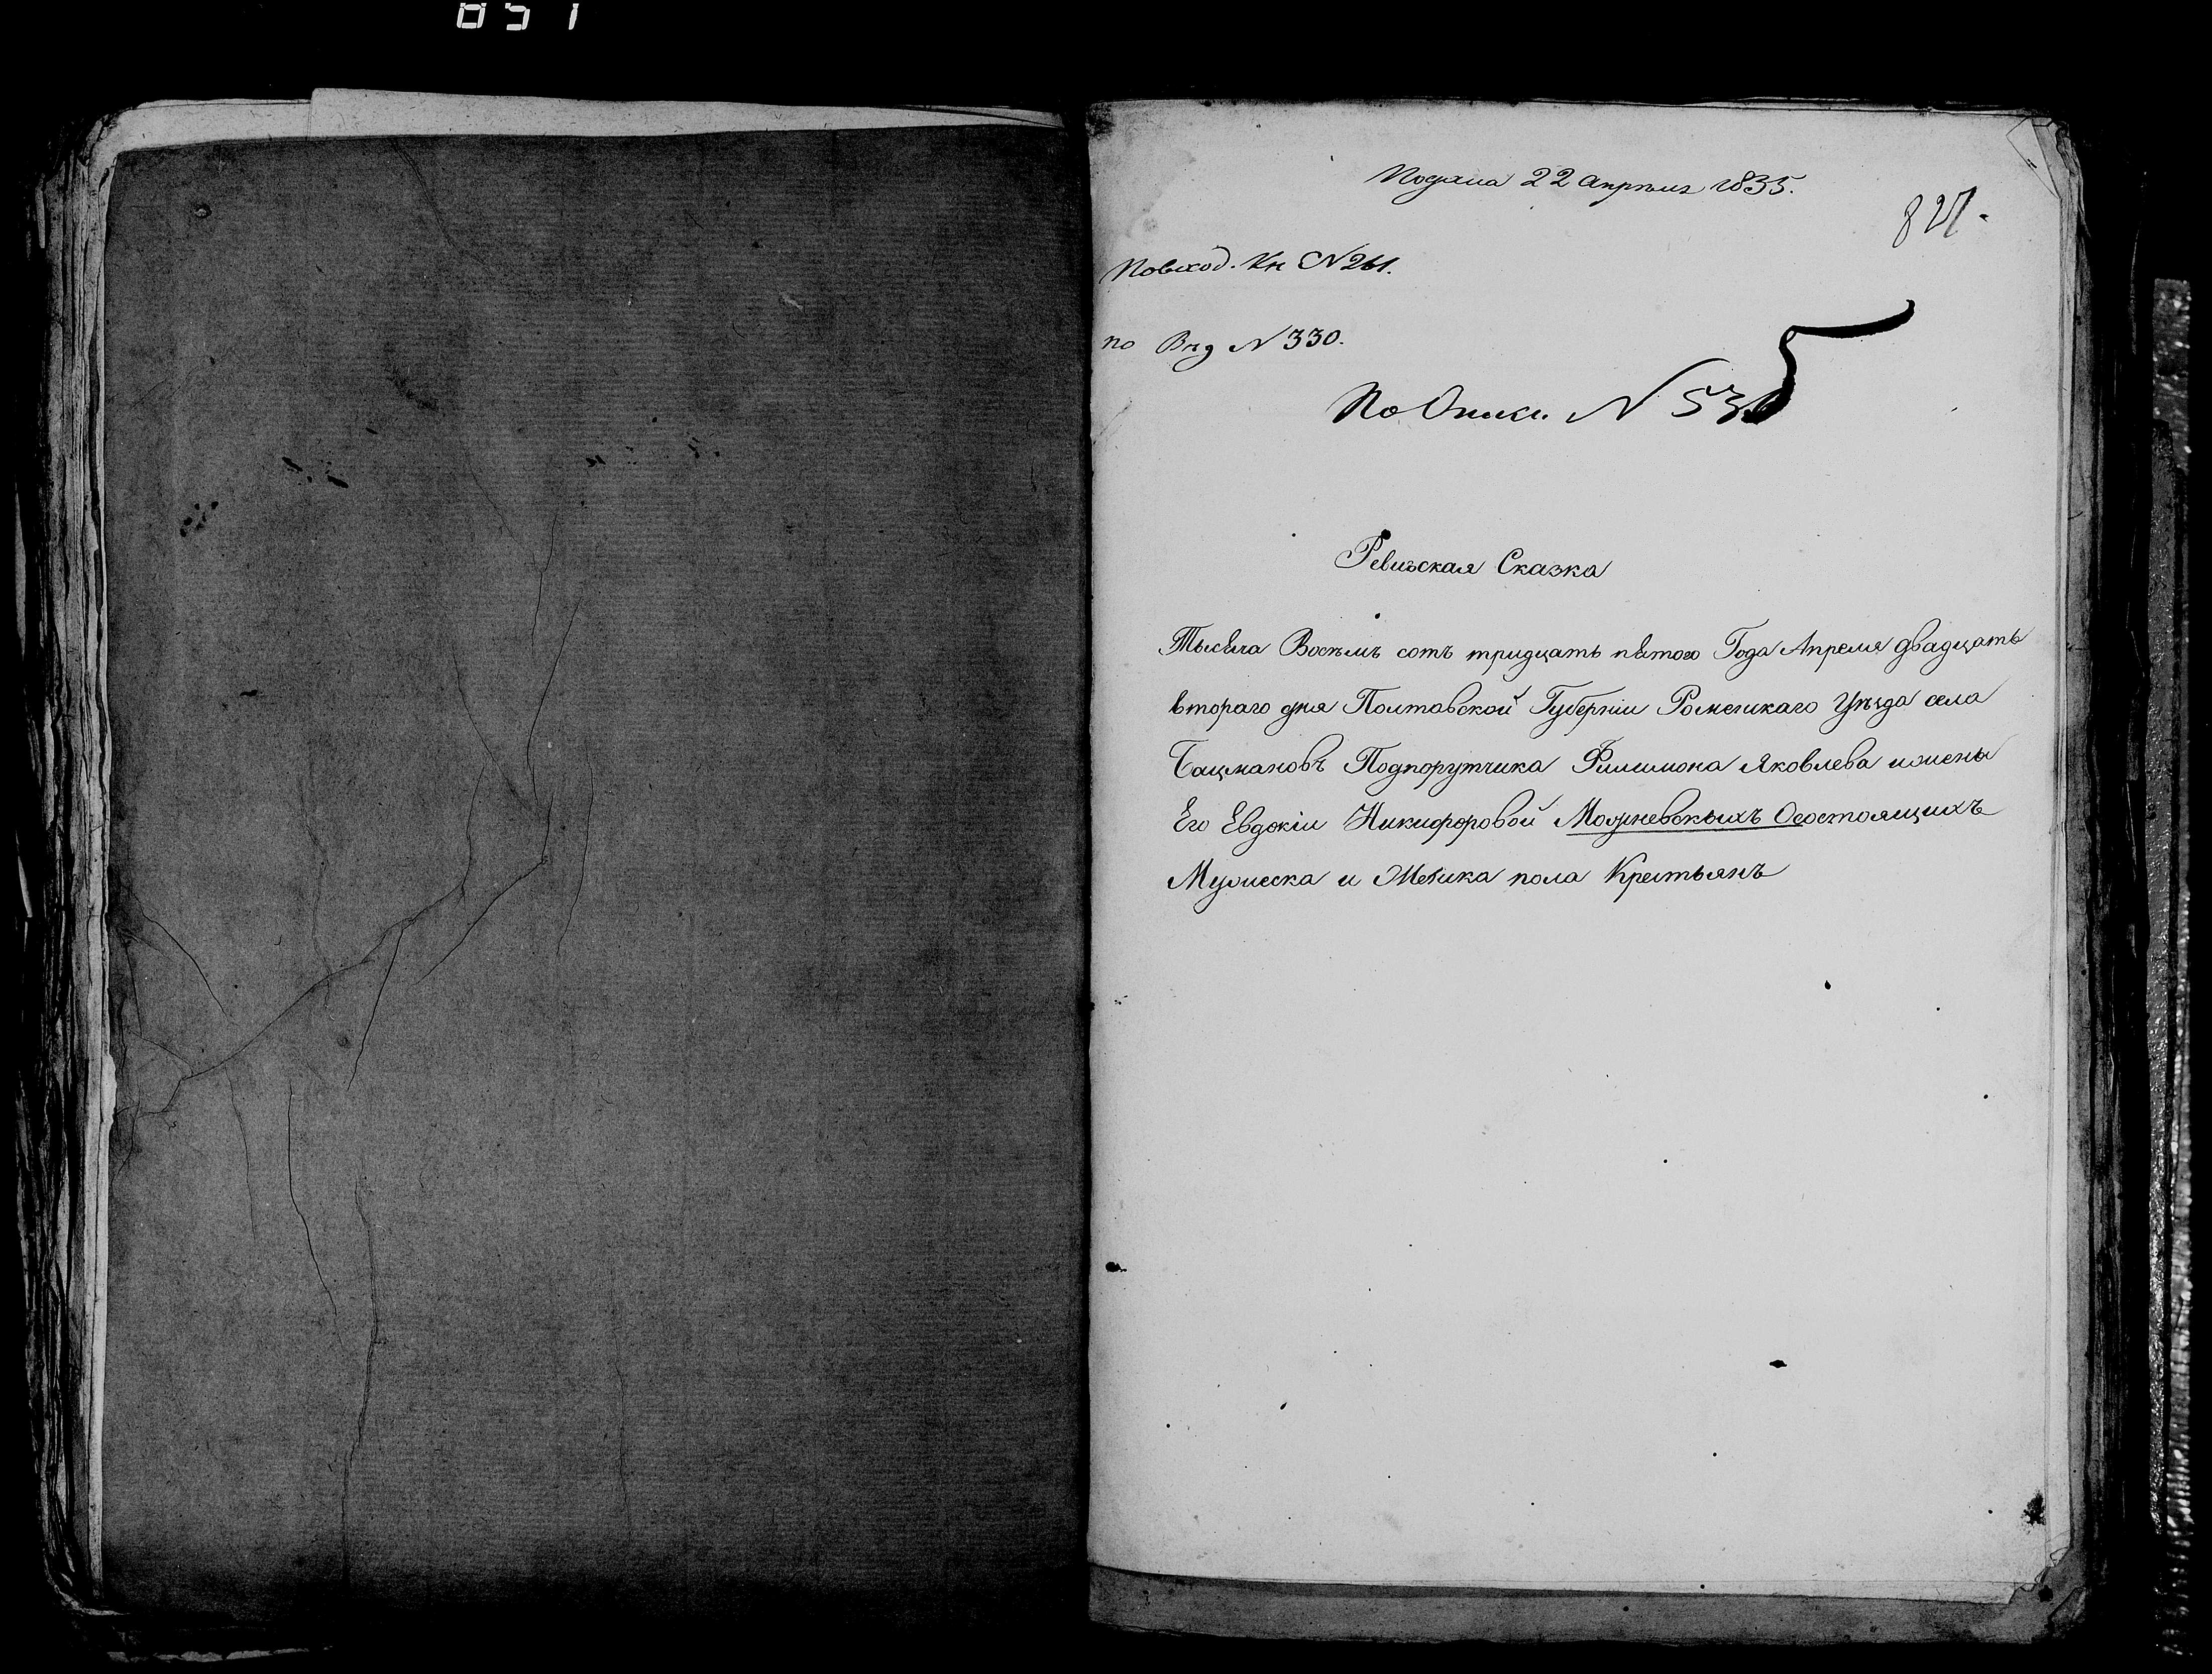 851
Подана 22 апрѣля 1835.
821.
По вход. Кн N 261.
по Вѣд N 330.
По Описи. N 535
Ревизская Сказка
Тысяча Восемь сотъ тридцать пятого Года Апреля двадцать
втораго дня Полтавской Губерніи Роменскаго Уѣзда села
Бацмановъ Подпорутчика Филимона Яковлева и жены
Его Евдокіи Никифоровой Можневскихъ Осостоящихъ
Мужеска и Женска пола Крестьянъ